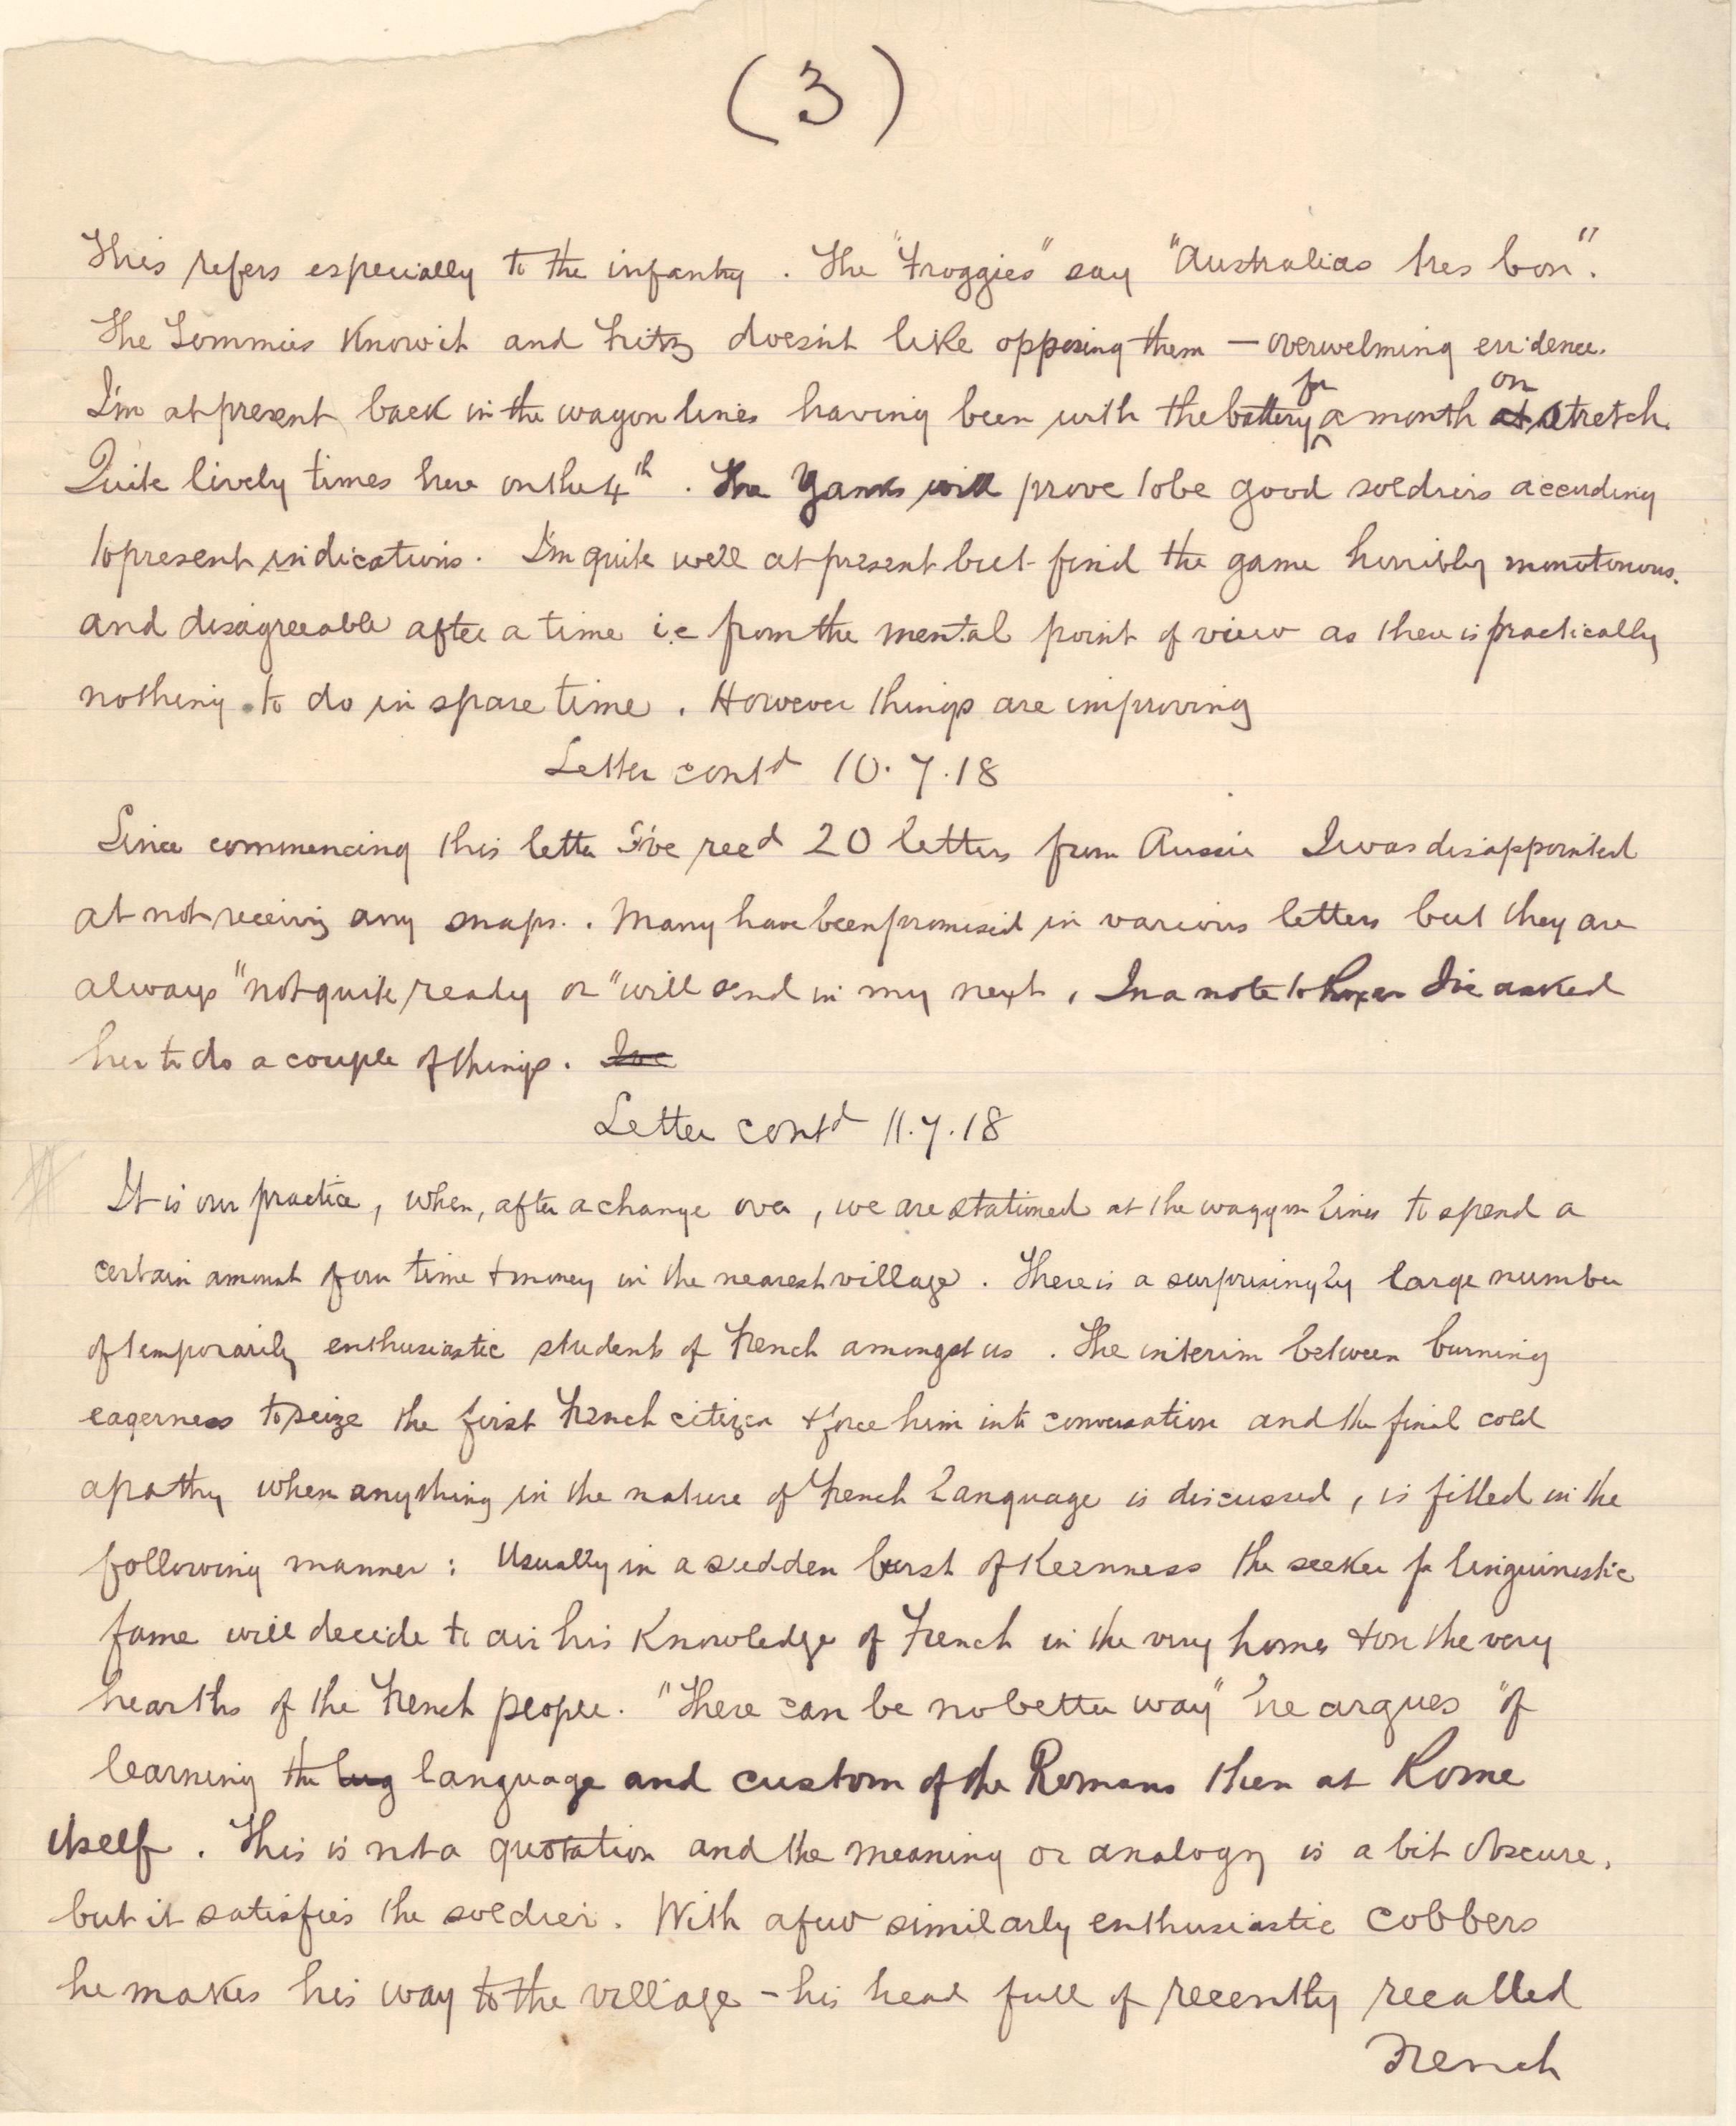 (3)
This refers especially to the infantry. The "Froggies" say "Australias tres bon".
The Tommies know it and Fritz doesn't like opposing them — overwelming evidence.
I'm at present back in the wagon lines having been with the battery for a month on at stretch.
Quite lively times here on the 4th. The Yanks will prove to be good soldiers according
to present indications. I'm quite well at present but find the game horribly monotonous.
and disagreeable after a time i.e from the mental point of view as there is practically
nothing to do in spare time. However things are improving
Letter contd 10.7.18
Since commencing this letter I've recd 20 letters from Aussie I was disappointed
at not receiving any snaps.. Many have been promised in various letters but they are
always "not quite ready or "will send in my next. In a note to I've asked
her to do a couple of things. Ive
Letter contd 11.7.18
It is our practice, when, after a change over, we are stationed at the waggon lines to spend a
certain amount of our time & money in the nearest village. There is a surprisingly large number
of temporarily enthusiastic students of French amongst us. The interim between burning
eagerness to seize the first French citizen & force him into conversation and the final cold
apathy when anything in the nature of French language is discussed, is filled in the
following manner: Usually in a sudden burst of keenness the seeker for linguinistic
fame will decide to air his knowledge of French in the very homes & on the very
hearths of the French people. "There can be no better way" he argues "of
learning the lug language and custom of the Romans then at Rome
itself. This is not a quotation and the meaning or analogy is a bit obscure,
but it satisfies the soldier. With a few similarly enthusiastic cobbers
he makes his way to the village - his head full of recently recalled
French